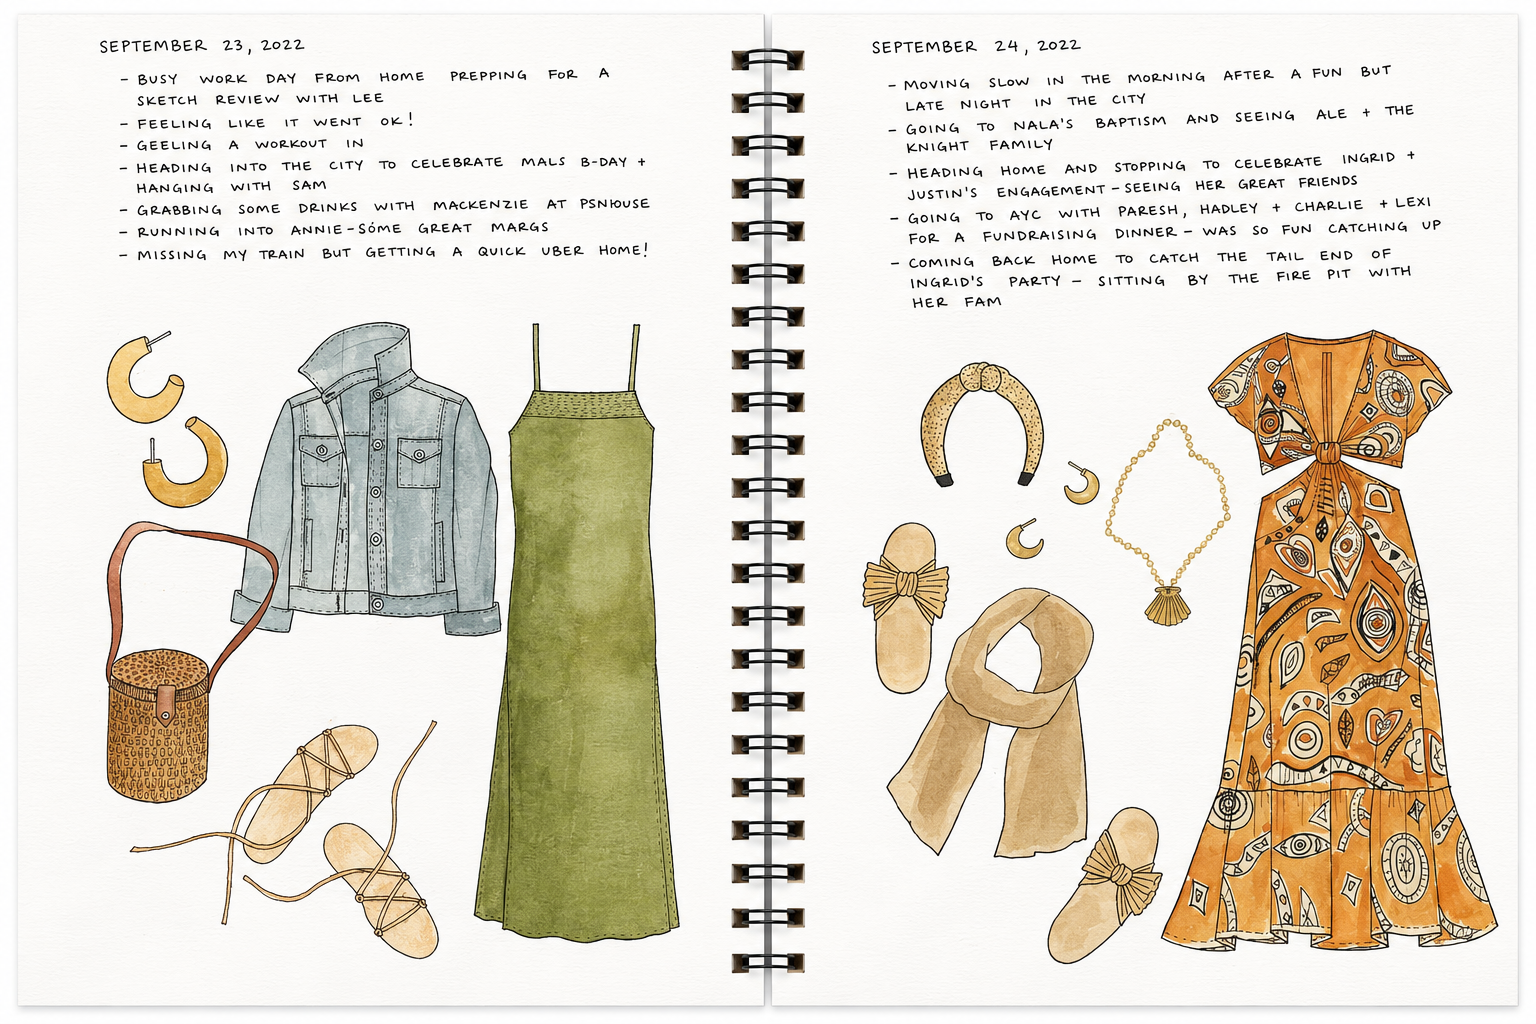 SEPTEMBER 23, 2022
- BUSY WORK DAY FROM HOME PREPPING FOR A
SKETCH REVIEW WITH LEE
- FEELING LIKE IT WENT OK!
- GEELING A WORKOUT IN
- HEADING INTO THE CITY TO CELEBRATE MALS B-DAY +
HANGING WITH SAM
- GRABBING SOME DRINKS WITH MACKENZIE AT PSNHOUSE
- RUNNING INTO ANNIE - SÓME GREAT MARGS
- MISSING MY TRAIN BUT GETTING A QUICK UBER HOME!
SEPTEMBER 24, 2022
- MOVING SLOW IN THE MORNING AFTER A FUN BUT
LATE NIGHT IN THE CITY
- GOING TO NALA'S BAPTISM AND SEEING ALE + THE
KNIGHT FAMILY
- HEADING HOME AND STOPPING TO CELEBRATE INGRID +
JUSTIN'S ENGAGEMENT - SEEING HER GREAT FRIENDS
- GOING TO AYC WITH PARESH, HADLEY + CHARLIE + LEXI
FOR A FUNDRAISING DINNER - WAS SO FUN CATCHING UP
- COMING BACK HOME TO CATCH THE TAIL END OF
INGRID'S PARTY - SITTING BY THE FIRE PIT WITH
HER FAM